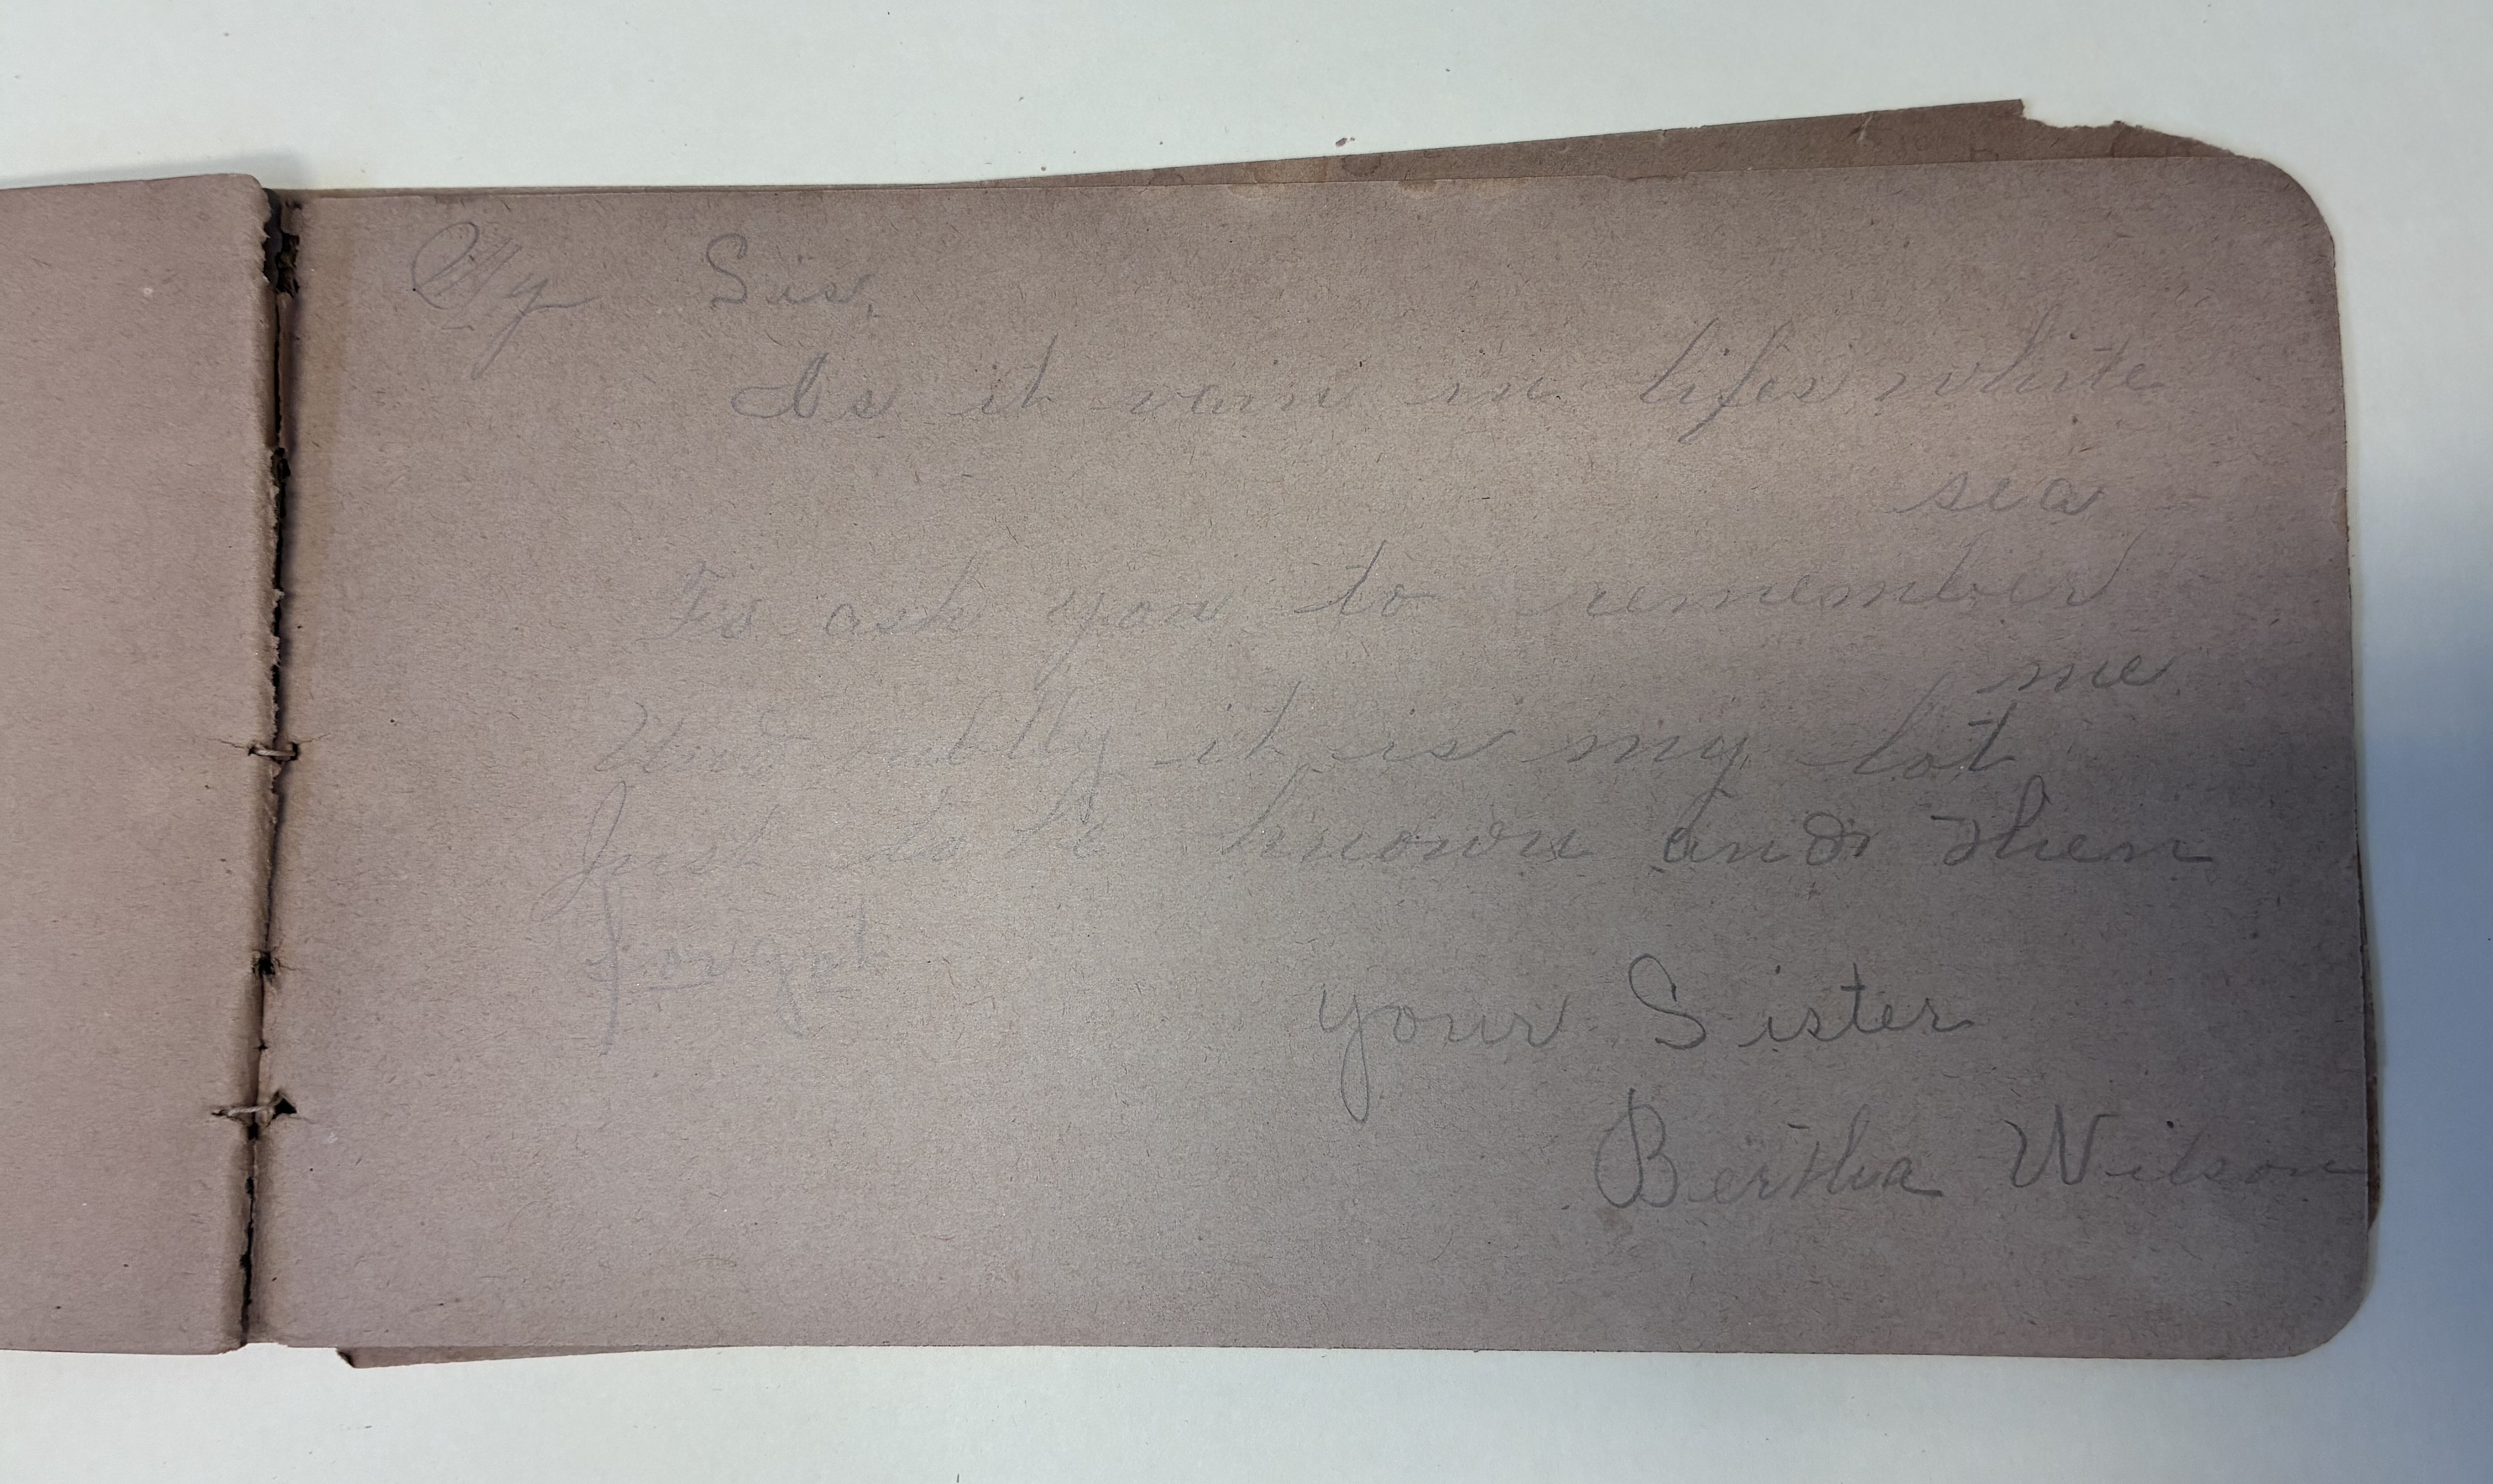 My Sis,
Is it vain in lifes white
sea
To ask you to remember
me
Undoubtly it is my lot
Just to be known and then
forgot
your Sister
Bertha Wilson